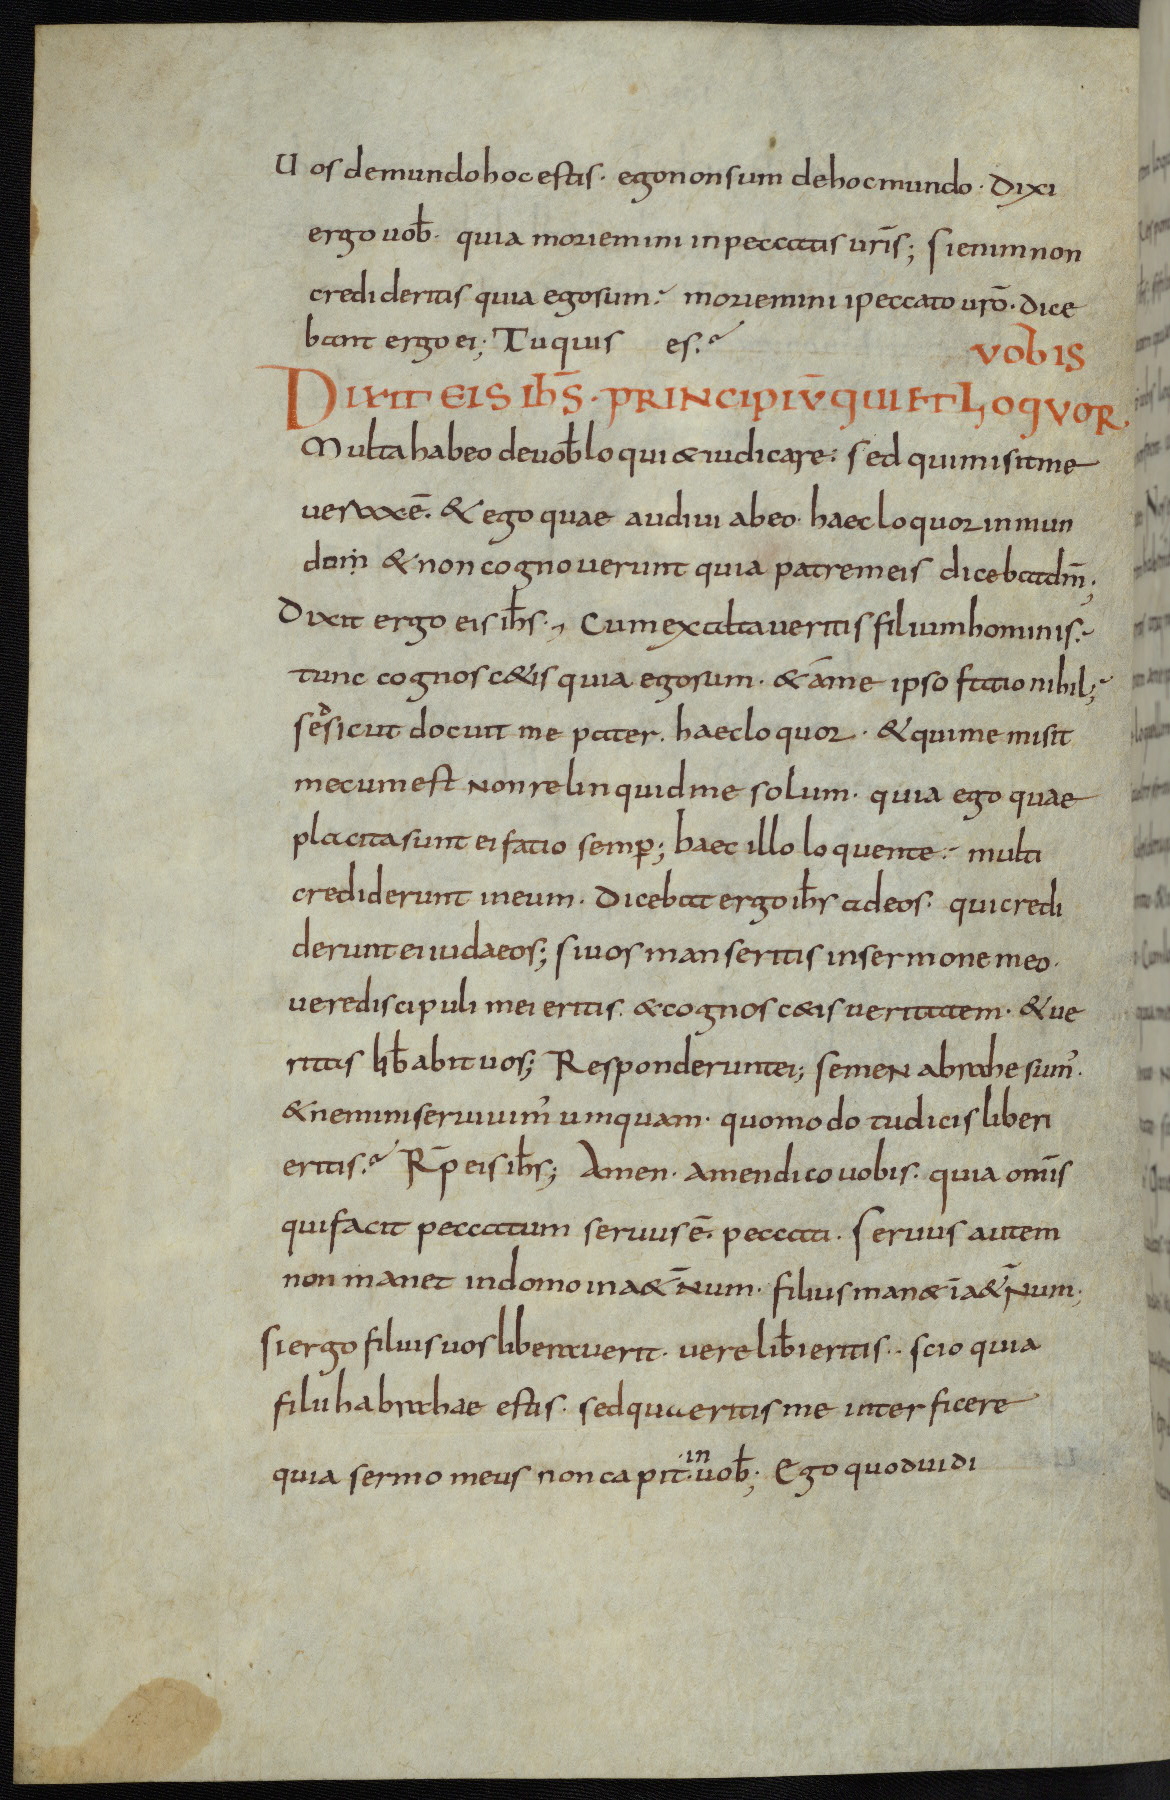 Uos demundo hoc estis · ego non sum de hoc mundo · Dixi
ergo uob̄ · quia moriemini in peccatis ur̄is; si enim non
credideritis quia ego sum · moriemini ipeccato ur̄o · dice
bant ergo ei; Tu quis es ·
vobis
Dixit eis ih̄s · principiū qui et loquor ·
Multa habeo de uob̄ loqui & iudicare : sed qui misit me
uerax ē · & ego quae audiui ab eo · haec loquor in mun
dom & non cognouerunt quia patrem eis dicebat dm̄;
Dixit ergo eis ih̄s ·, Cum exaltaueritis filium hominis ·
tunc cognosc&is quia ego sum · & ā me ipso fatio nihil;
sed sicut docuit me pater · haec loquor · & qui me misit
mecum est non relinquid me solum · quia ego quae
placita sunt ei fatio semp̄; haec illo loquente · multi
crediderunt in eum · Dicebat ergo ih̄s ad eos · qui credi
derunt ei iudaeos; si uos manseritis in sermone meo ·
uere discipuli mei eritis · & cognosc&is ueritatem · & ue
ritas lib̄abit uos; Responderunt ei; semen abrahe sum᾽ ·
& nemini seruiuim᾽ umquam · quomodo tu dicis liberi
eritis · Rp̄ eis ih̄s; Amen · amen dico uobis · quia omīs
qui facit peccatum seruus ē · peccati · Seruus autem
non manet in domo in a&̄num · filius man& ī a&̄num;
si ergo filius uos liberauerit · uere lib̄i eritis · scio quia
filii habrahae estis · sed quaeritis me interficere
quia sermo meus non capit · in uob̄; Ego quod uidi